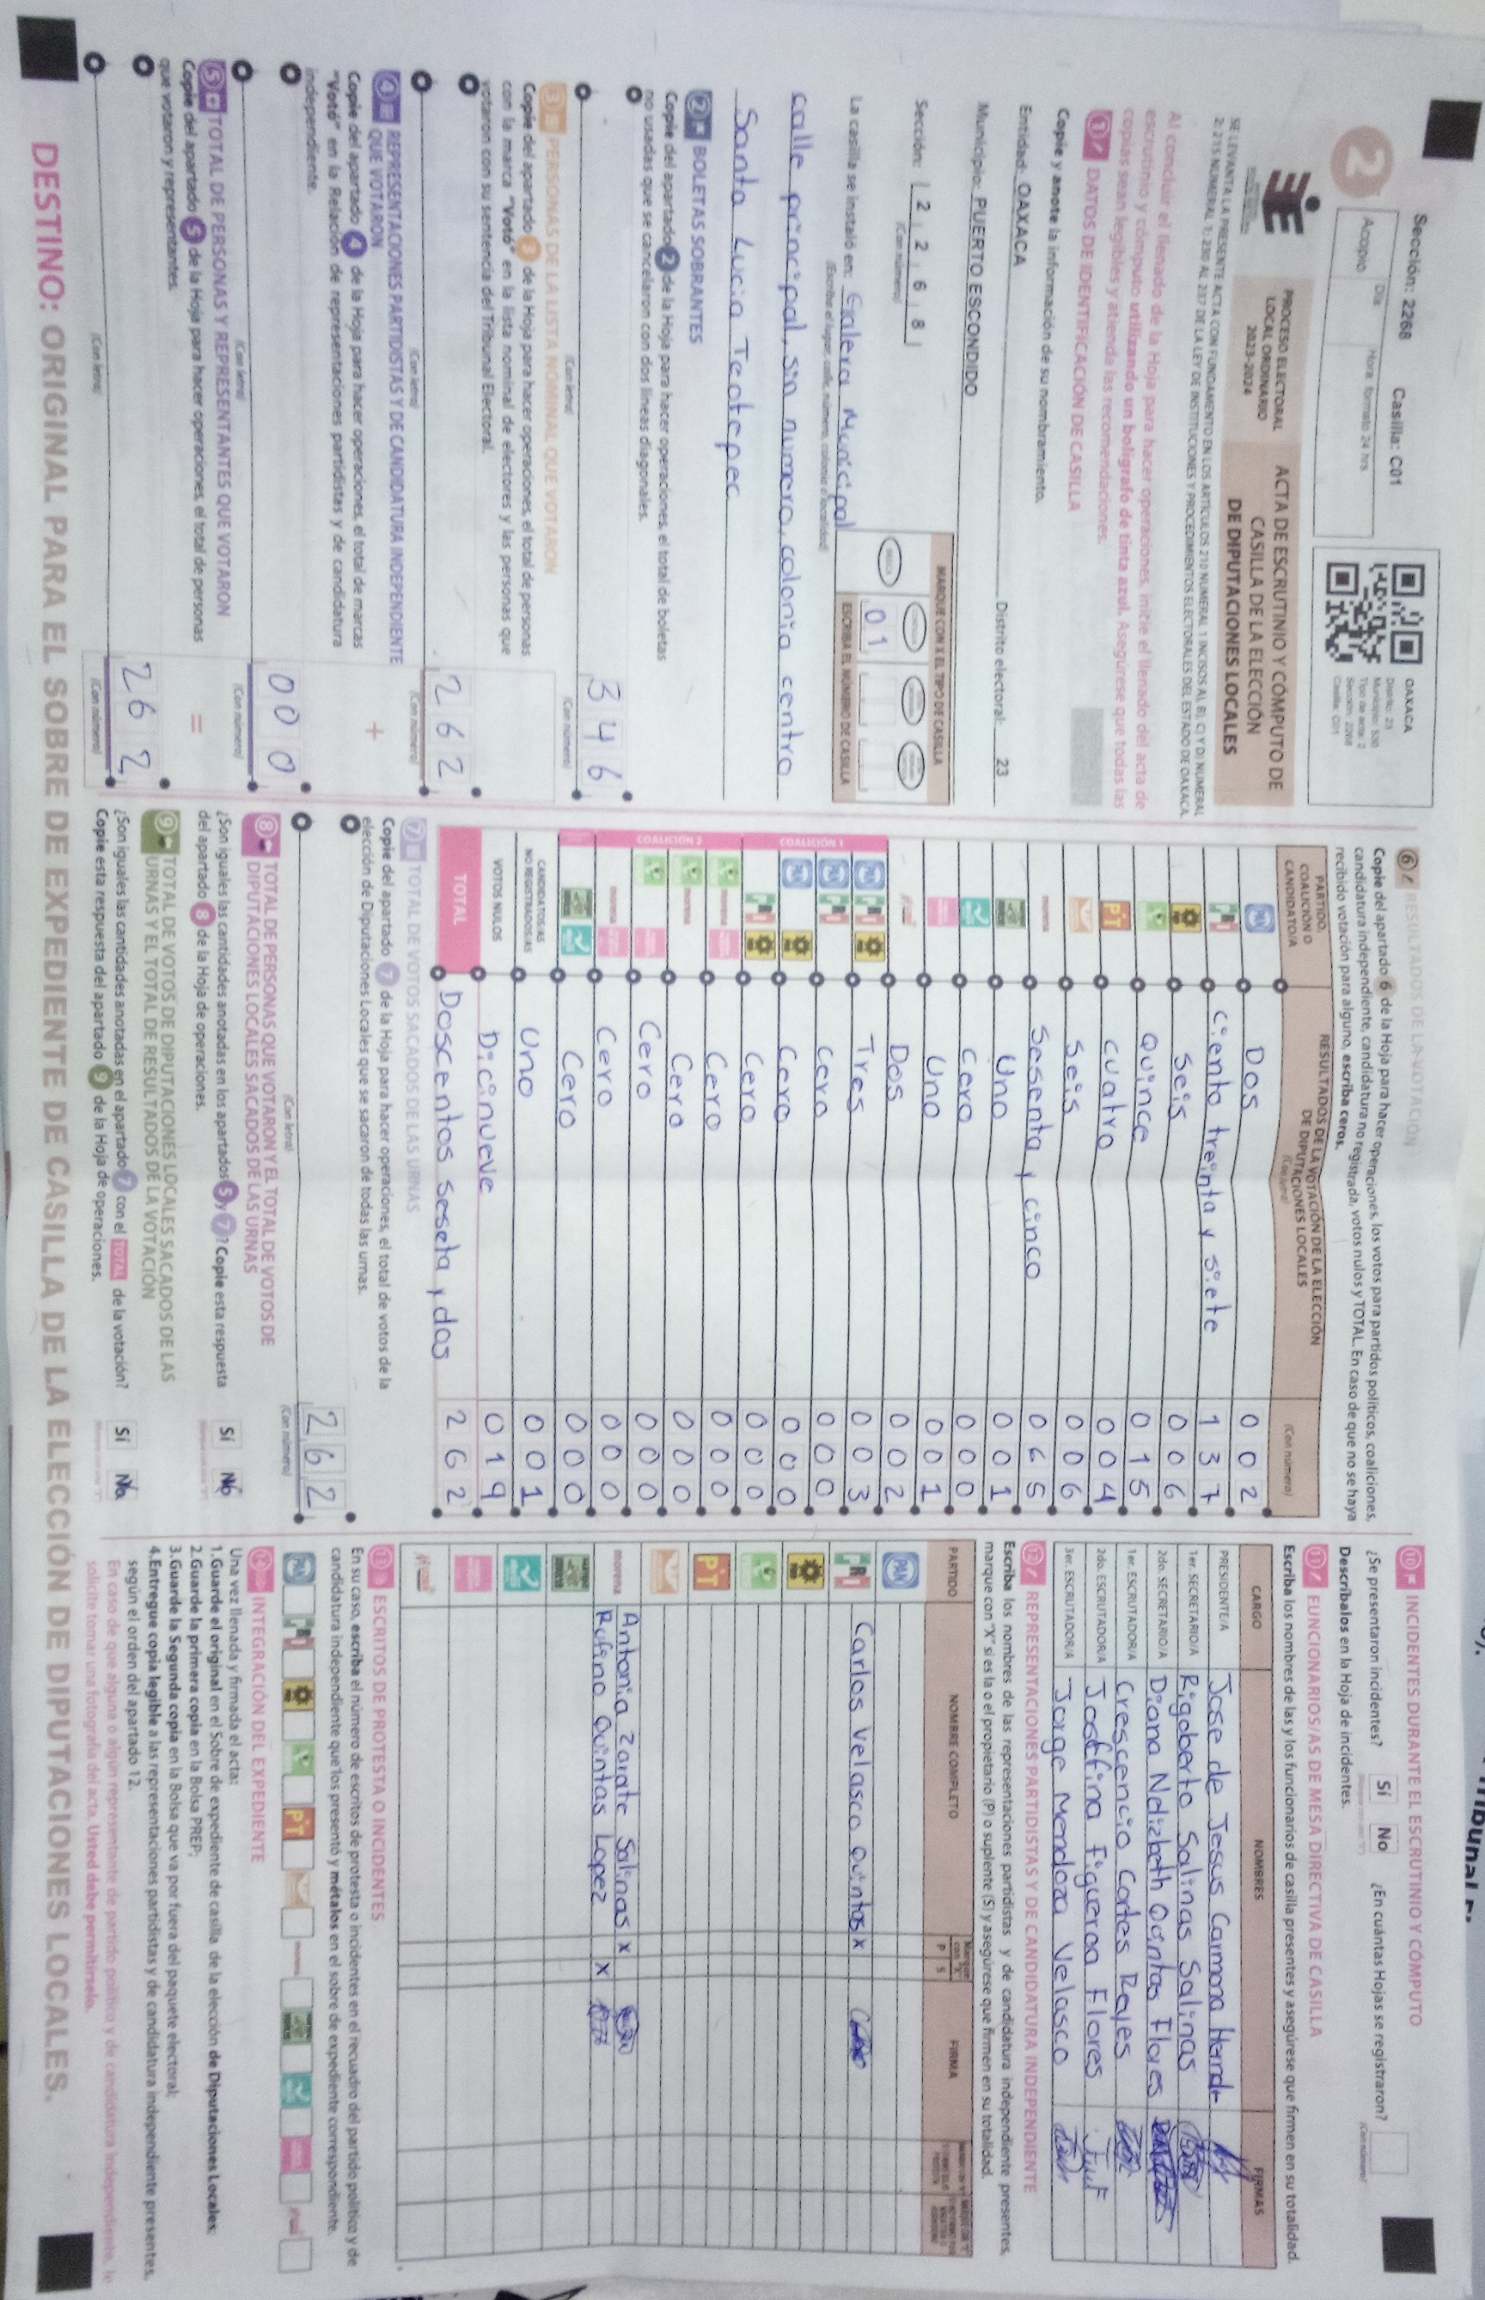 Sección: 2268 Casilla: C01
2
Acopio Día Hora formato 24 hrs.
OAXACA
Distrito: 23
Municipio: 530
Tipo de acta: 2
Sección: 2268
Casilla: C01
PROCESO ELECTORAL
LOCAL ORDINARIO
2023-2024
ACTA DE ESCRUTINIO Y CÓMPUTO DE
CASILLA DE LA ELECCIÓN
DE DIPUTACIONES LOCALES
SE LEVANTA LA PRESENTE ACTA CON FUNDAMENTO EN LOS ARTÍCULOS 210 NUMERAL 1 INCISOS A), B), C) Y D) NUMERAL
2; 215 NUMERAL 1; 230 AL 237 DE LA LEY DE INSTITUCIONES Y PROCEDIMIENTOS ELECTORALES DEL ESTADO DE OAXACA.
Al concluir el llenado de la Hoja para hacer operaciones, inicie el llenado del acta de
escrutinio y cómputo utilizando un bolígrafo de tinta azul. Asegúrese que todas las
copias sean legibles y atienda las recomendaciones.
1 DATOS DE IDENTIFICACIÓN DE CASILLA
Copie y anote la información de su nombramiento.
Entidad: OAXACA Distrito electoral: 23
Municipio: PUERTO ESCONDIDO
Sección: 2 2 6 8
(Con número)
MARQUE CON X EL TIPO DE CASILLA
ESCRIBA EL NÚMERO DE CASILLA
0 1
La casilla se instaló en: Galera Municipal
(Escriba el lugar, calle, número, colonia o localidad)
calle principal, sin numero, colonia centro
Santa Lucia Teotepec
2 BOLETAS SOBRANTES
Copie del apartado 2 de la Hoja para hacer operaciones, el total de boletas
no usadas que se cancelaron con dos líneas diagonales.
3 4 6
(Con letra) (Con número)
3 PERSONAS DE LA LISTA NOMINAL QUE VOTARON
Copie del apartado 3 de la Hoja para hacer operaciones, el total de personas
con la marca "Votó" en la lista nominal de electores y las personas que
votaron con su sentencia del Tribunal Electoral.
2 6 2
(Con letra) (Con número)
4 REPRESENTACIONES PARTIDISTAS Y DE CANDIDATURA INDEPENDIENTE
QUE VOTARON
+
Copie del apartado 4 de la Hoja para hacer operaciones, el total de marcas
"Votó" en la Relación de representaciones partidistas y de candidatura
independiente.
0 0 0
(Con letra) (Con número)
5 TOTAL DE PERSONAS Y REPRESENTANTES QUE VOTARON
=
Copie del apartado 5 de la Hoja para hacer operaciones, el total de personas
que votaron y representantes.
2 6 2
(Con letra) (Con número)
6 RESULTADOS DE LA VOTACIÓN
Copie del apartado 6 de la Hoja para hacer operaciones, los votos para partidos políticos, coaliciones,
candidatura independiente, candidatura no registrada, votos nulos y TOTAL. En caso de que no se haya
recibido votación para alguno, escriba ceros.
PARTIDO,
COALICIÓN O
CANDIDATO/A
RESULTADOS DE LA VOTACIÓN DE LA ELECCIÓN
DE DIPUTACIONES LOCALES
(Con letra) (Con número)
PAN Dos 0 0 2
PRI Ciento treinta y siete 1 3 7
PRD Seis 0 0 6
Quince 0 1 5
PT cuatro 0 0 4
Seis 0 0 6
morena Sesenta y cinco 0 6 5
Uno 0 0 1
Cero 0 0 0
Uno 0 0 1
Dos 0 0 2
COALICIÓN 1
PAN PRI PRD Tres 0 0 3
PAN PRI Cero 0 0 0
PAN PRD Cero 0 0 0
PRI PRD Cero 0 0 0
COALICIÓN 2
morena Cero 0 0 0
morena Cero 0 0 0
Cero 0 0 0
morena Cero 0 0 0
Cero 0 0 0
CANDIDATOS/AS
NO REGISTRADOS/AS Uno 0 0 1
VOTOS NULOS Dicinueve 0 1 9
TOTAL Doscentos seseta y dos 2 6 2
7 TOTAL DE VOTOS SACADOS DE LAS URNAS
Copie del apartado 7 de la Hoja para hacer operaciones, el total de votos de la
elección de Diputaciones Locales que se sacaron de todas las urnas.
2 6 2
(Con letra) (Con número)
8 TOTAL DE PERSONAS QUE VOTARON Y EL TOTAL DE VOTOS DE
DIPUTACIONES LOCALES SACADOS DE LAS URNAS
¿Son iguales las cantidades anotadas en los apartados 5 y 7? Copie esta respuesta
del apartado 8 de la Hoja de operaciones.
Sí No
9 TOTAL DE VOTOS DE DIPUTACIONES LOCALES SACADOS DE LAS
URNAS Y EL TOTAL DE RESULTADOS DE LA VOTACIÓN
¿Son iguales las cantidades anotadas en el apartado 7 con el TOTAL de la votación?
Copie esta respuesta del apartado 9 de la Hoja de operaciones.
Sí No
10 INCIDENTES DURANTE EL ESCRUTINIO Y CÓMPUTO
¿Se presentaron incidentes? Sí No ¿En cuántas Hojas se registraron?
(Con número)
Descríbalos en la Hoja de incidentes.
11 FUNCIONARIOS/AS DE MESA DIRECTIVA DE CASILLA
Escriba los nombres de las y los funcionarios de casilla presentes y asegúrese que firmen en su totalidad.
CARGO NOMBRES FIRMAS
PRESIDENTE/A Jose de Jesus Carmona Hernde
1er. SECRETARIO/A Rigoberto Salinas Salinas
2do. SECRETARIO/A Diana Nelizbeth Quintas Flores
1er. ESCRUTADOR/A Crescencio Cortes Reyes
2do. ESCRUTADOR/A Josefina Figueroa Flores
3er. ESCRUTADOR/A Jorge Mendoza Velasco
12 REPRESENTACIONES PARTIDISTAS Y DE CANDIDATURA INDEPENDIENTE
Escriba los nombres de las representaciones partidistas y de candidatura independiente presentes,
marque con "X" si es la o el propietario (P) o suplente (S) y asegúrese que firmen en su totalidad.
PARTIDO NOMBRE COMPLETO P S FIRMA
PAN
PRI Carlos Velasco Quintas X
PRD
PT
morena Antonia Zarate Salinas X
Rufino Quintas Lopez X
13 ESCRITOS DE PROTESTA O INCIDENTES
En su caso, escriba el número de escritos de protesta o incidentes en el recuadro del partido político y de
candidatura independiente que los presentó y métalos en el sobre de expediente correspondiente.
PAN PRI PRD PT morena
14 INTEGRACIÓN DEL EXPEDIENTE
Una vez llenada y firmada el acta:
1.Guarde el original en el Sobre de expediente de casilla de la elección de Diputaciones Locales;
2.Guarde la primera copia en la Bolsa PREP;
3.Guarde la Segunda copia en la Bolsa que va por fuera del paquete electoral;
4.Entregue copia legible a las representaciones partidistas y de candidatura independiente presentes,
según el orden del apartado 12.
En caso de que alguna o algún representante de partido político y de candidatura independiente, le
solicite tomar una fotografía del acta, Usted debe permitírselo.
DESTINO: ORIGINAL PARA EL SOBRE DE EXPEDIENTE DE CASILLA DE LA ELECCIÓN DE DIPUTACIONES LOCALES.